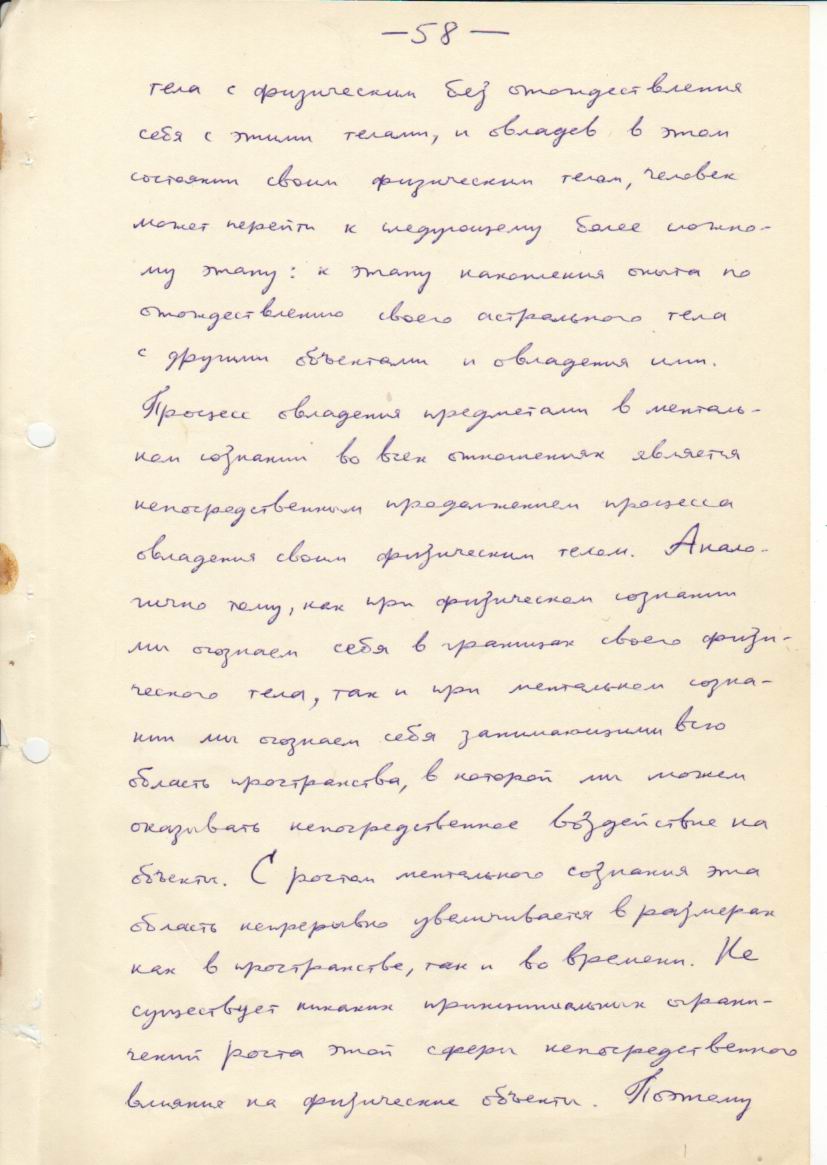 —58—
тела с физическим без отождествления
себя с этими телами, и овладев в этом
состоянии своим физическим телом, человек
может перейти к следующему более сложно-
му этапу: к этапу накопления опыта по
отождествлению своего астрального тела
с другими объектами и овладения ими.
Процесс овладения предметами в менталь-
ном сознании во всех отношениях является
непосредственным продолжением процесса
овладения своим физическим телом. Анало-
гично тому, как при физическом сознании
мы осознаем себя в границах своего физи-
ческого тела, так и при ментальном созна-
нии мы осознаем себя занимающими всю
область пространства, в которой мы можем
оказывать непосредственное воздействие на
объекты. С ростом ментального сознания эта
область непрерывно увеличивается в размерах
как в пространстве, так и во времени. Не
существует никаких принципиальных ограни-
чений роста этой сферы непосредственного
влияние на физические объекты. Поэтому